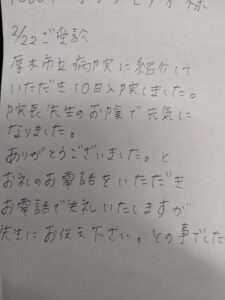 様
2/22ご受診
厚木市立病院に紹介して
いただき10日入院しました。
院長先生のお陰で元気に
なりました。
ありがとうございました。と
お礼のお電話をいただき
お電話で失礼いたしますが
先生にお伝え下さい。との事でした